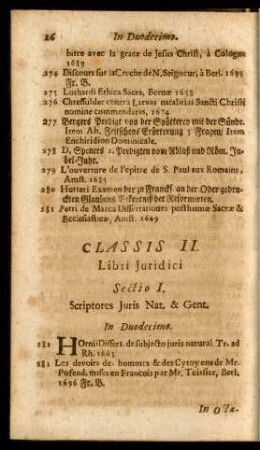 26 In Duodecimo.
bitre avec la grace de Jesus Christ, à Cologne
1689
274 Discours sur la Creche de N, Seigneur, à Berl. 1695
Fr. B.
275 Lushardi Ethica Sacra, Bernæ 1658
276 Chressulder contra Larvas natalitias Sancti Christi
nomine commendatas, 1674
277 Bergers Predigt von der Spötterey mit der Sünde.
Item Ah. Fritschens Erörterung 5 Fragen, Item
Enchiridion Dominicale.
278 D. Speners 2. Predigten vom Ablaß und Röm. Ju-
bel-Jahr.
279 L'ouverture de l'epitre de S. Paul aux Romains,
Amst. 1685
280 Hutteri Examen der zu Franckf. an der Oder gedru-
ckten Glaubens Bekentnß der Reformirten.
281 Petri de Marca Dissertationes posthumæ Sacræ &
Ecclesiasticæ, Amst. 1669
CLASSIS II.
Libri Juridici
Sectio I.
Scriptores Juris Nat. & Gent.
In Duodecimo.
282 HOrnii Dissert. de subjecto juris natural. Tr. ad
Rh. 1663
283 Les devoirs des hommes & des Cytoyens de Mr.
Pufend. mises en Francois par Mr. Teissier, Berl.
1696 Fr. B.
In Octa-